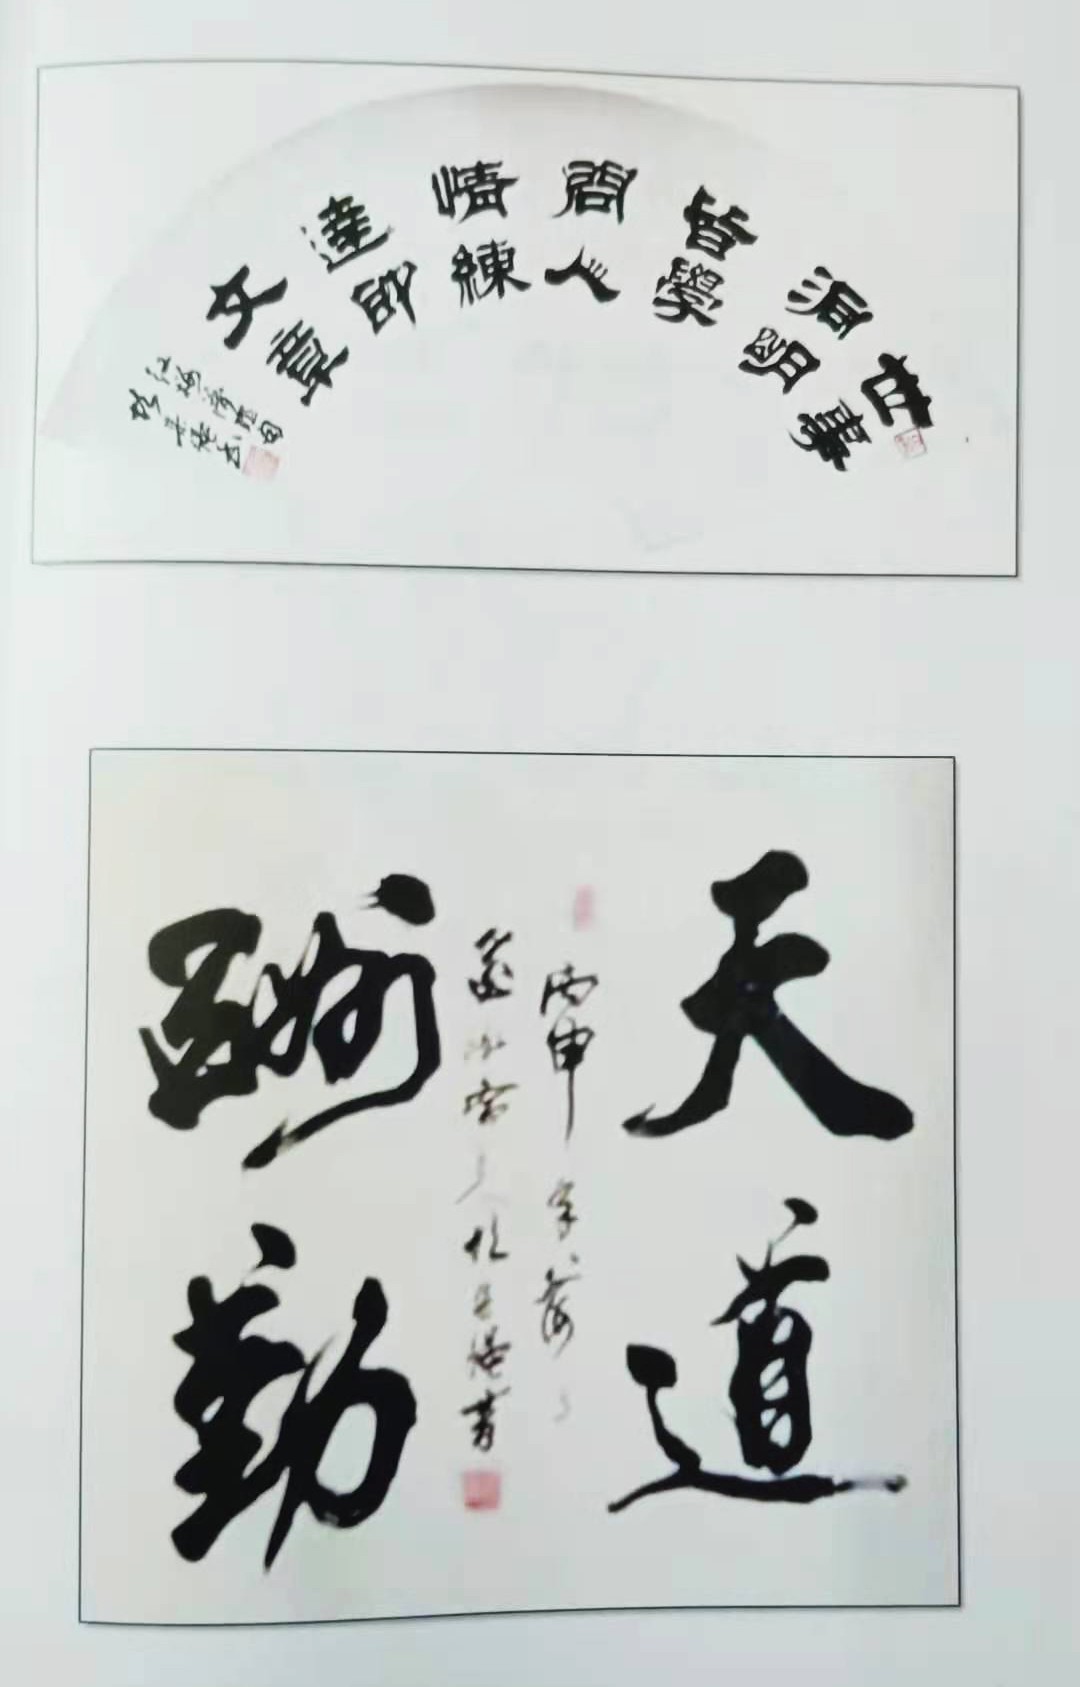 世事
洞明
皆學
問人
情練
達即
文章
天道
丙申年
酬勤